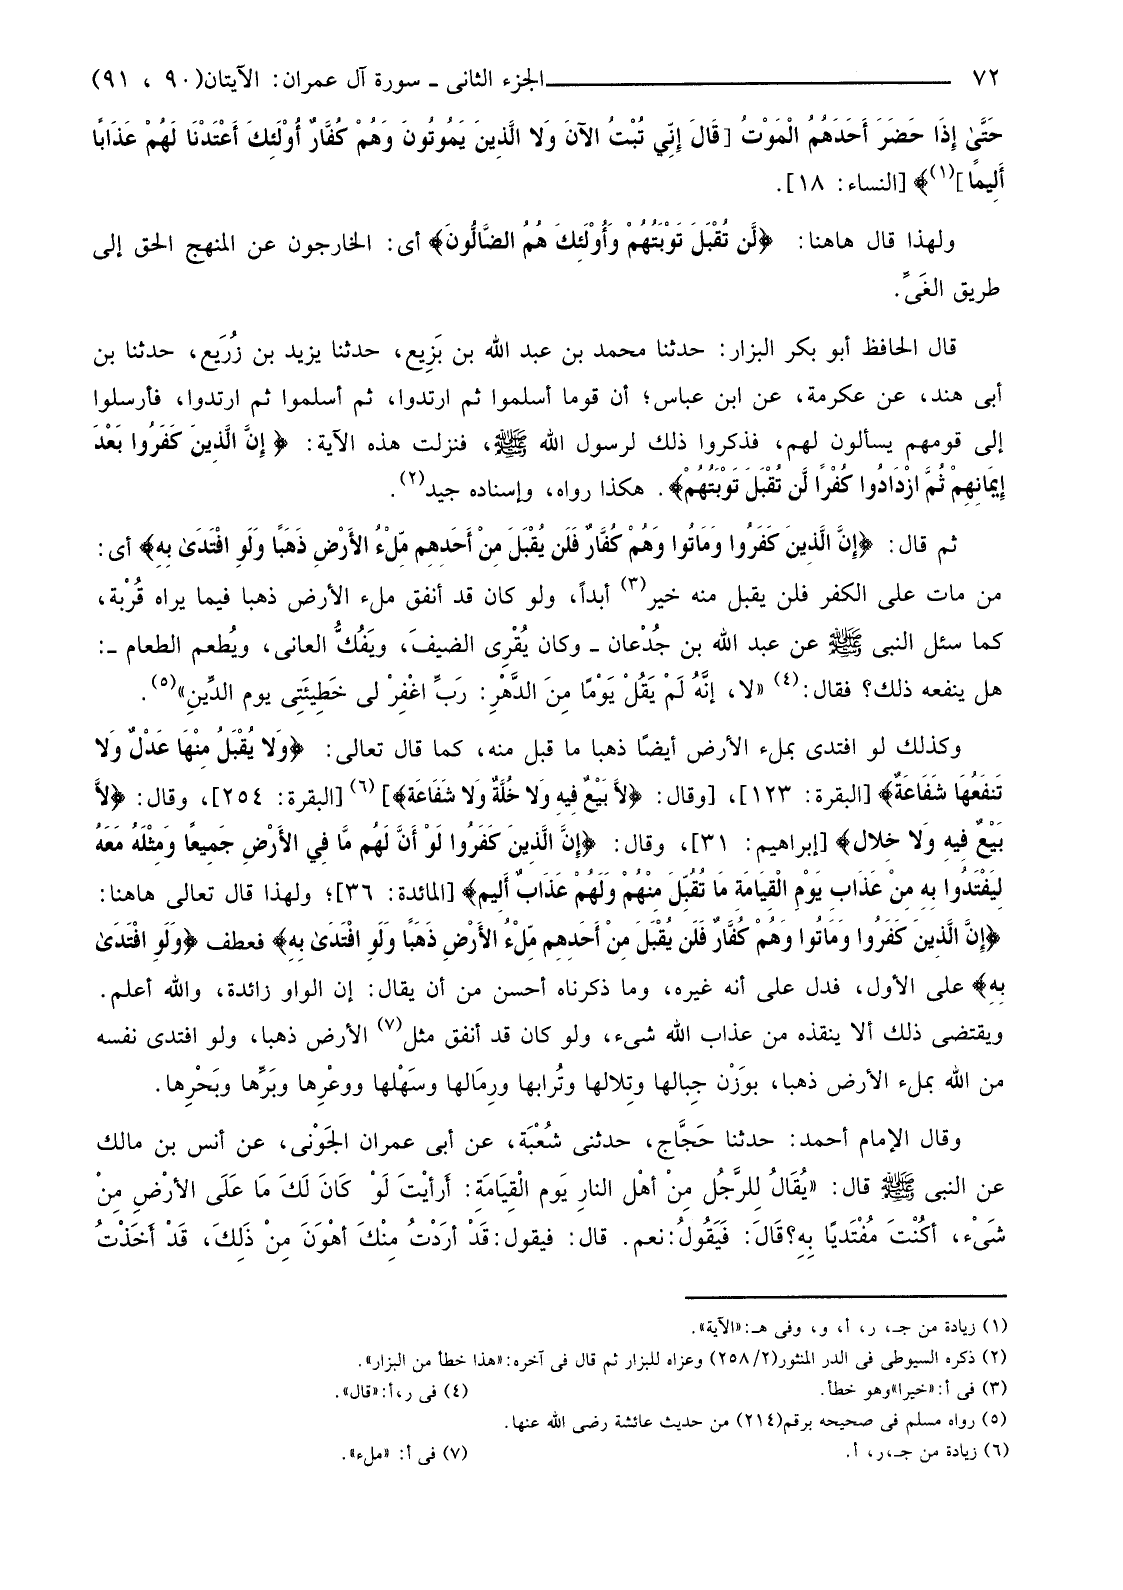 ٧٢ ــــــــ الجزء الثانى ـ سورة آل عمران: الآيتان(٩٠ ، ٩١)
حَتَّىٰ إِذَا حَضَرَ أَحَدَهُمُ الْمَوْتُ [قَالَ إِنِّي تُبْتُ الآنَ وَلا الَّذِينَ يَمُوتُونَ وَهُمْ كُفَّارٌ أُوْلَئِكَ أَعْتَدْنَا لَهُمْ عَذَابًا
أَلِيمًا](١)﴾ [النساء: ١٨].
ولهذا قال هاهنا: ﴿لَّن تُقْبَلَ تَوْبَتُهُمْ وَأُوْلَئِكَ هُمُ الضَّالُّونَ﴾ أى: الخارجون عن المنهج الحق إلى
طريق الغَىِّ.
قال الحافظ أبو بكر البزار: حدثنا محمد بن عبد الله بن بَزِيع، حدثنا يزيد بن زُرَيع، حدثنا بن
أبى هند، عن عكرمة، عن ابن عباس؛ أن قوما أسلموا ثم ارتدوا، ثم أسلموا ثم ارتدوا، فأرسلوا
إلى قومهم يسألون لهم، فذكروا ذلك لرسول الله ﷺ، فنزلت هذه الآية: ﴿ إِنَّ الَّذِينَ كَفَرُوا بَعْدَ
إِيمَانِهِمْ ثُمَّ ازْدَادُوا كُفْرًا لَّن تُقْبَلَ تَوْبَتُهُمْ﴾. هكذا رواه، وإسناده جيد(٢).
ثم قال: ﴿إِنَّ الَّذِينَ كَفَرُوا وَمَاتُوا وَهُمْ كُفَّارٌ فَلَن يُقْبَلَ مِنْ أَحَدِهِم مِّلْءُ الأَرْضِ ذَهَبًا وَلَوِ افْتَدَىٰ بِهِ﴾ أى:
من مات على الكفر فلن يقبل منه خير(٣) أبداً، ولو كان قد أنفق ملء الأرض ذهبا فيما يراه قُرْبة،
كما سئل النبى ﷺ عن عبد الله بن جُدْعان ـ وكان يُقْرِى الضيفَ، ويَفُكُّ العانى، ويُطعم الطعام ـ:
هل ينفعه ذلك؟ فقال:(٤) «لا، إنَّهُ لَمْ يَقُلْ يَوْمًا مِنَ الدَّهْرِ: رَبِّ اغْفِرْ لى خَطِيئَتِى يوم الدِّينِ»(٥).
وكذلك لو افتدى بملء الأرض أيضًا ذهبا ما قبل منه، كما قال تعالى: ﴿وَلا يُقْبَلُ مِنْهَا عَدْلٌ وَلا
تَنفَعُهَا شَفَاعَةٌ﴾ [البقرة: ١٢٣]، [وقال: ﴿لاَّ بَيْعٌ فِيهِ وَلا خُلَّةٌ وَلا شَفَاعَة﴾](٦) [البقرة: ٢٥٤]، وقال: ﴿لاَّ
بَيْعٌ فِيهِ وَلا خِلال﴾ [إبراهيم: ٣١]، وقال: ﴿إِنَّ الَّذِينَ كَفَرُوا لَوْ أَنَّ لَهُم مَّا فِي الأَرْضِ جَمِيعًا وَمِثْلَهُ مَعَهُ
لِيَفْتَدُوا بِهِ مِنْ عَذَابِ يَوْمِ الْقِيَامَةِ مَا تُقُبِّلَ مِنْهُمْ وَلَهُمْ عَذَابٌ أَلِيم﴾ [المائدة: ٣٦]؛ ولهذا قال تعالى هاهنا:
﴿إِنَّ الَّذِينَ كَفَرُوا وَمَاتُوا وَهُمْ كُفَّارٌ فَلَن يُقْبَلَ مِنْ أَحَدِهِم مِّلْءُ الأَرْضِ ذَهَبًا وَلَوِ افْتَدَىٰ بِهِ﴾ فعطف ﴿وَلَوِ افْتَدَىٰ
بِهِ﴾ على الأول، فدل على أنه غيره، وما ذكرناه أحسن من أن يقال: إن الواو زائدة، والله أعلم.
ويقتضى ذلك ألا ينقذه من عذاب الله شىء، ولو كان قد أنفق مثل(٧) الأرض ذهبا، ولو افتدى نفسه
من الله بملء الأرض ذهبا، بوَزْن جِبالها وتِلالها وتُرابها ورِمَالها وسَهْلها ووعْرِها وبَرِّها وبَحْرِها.
وقال الإمام أحمد: حدثنا حَجَّاج، حدثنى شُعْبَة، عن أبى عمران الجَوْنى، عن أنس بن مالك
عن النبى ﷺ قال: «يُقَالُ لِلرَّجُلِ مِنْ أهْلِ النارِ يَوم الْقِيَامَةِ: أرَأيْتَ لَوْ كَانَ لَكَ مَا عَلَى الأرْضِ مِنْ
شَىْء، أكُنْتَ مُفْتَدِيًا بِهِ؟قَالَ: فَيَقُولُ:نعم. قال: فيقول:قَدْ أرَدْتُ مِنْكَ أهْوَنَ مِنْ ذَلِكَ، قَدْ أخَذْتُ
(١) زيادة من جـ، ر، أ، و، وفى هـ:«الآية».
(٢) ذكره السيوطى فى الدر المنثور(٢/ ٢٥٨) وعزاه للبزار ثم قال فى آخره:«هذا خطأ من البزار».
(٣) فى أ:«خيرا»وهو خطأ. (٤) فى ر،أ:«قال».
(٥) رواه مسلم فى صحيحه برقم(٢١٤) من حديث عائشة رضى الله عنها.
(٦) زيادة من جـ،ر، أ. (٧) فى أ: «ملء».